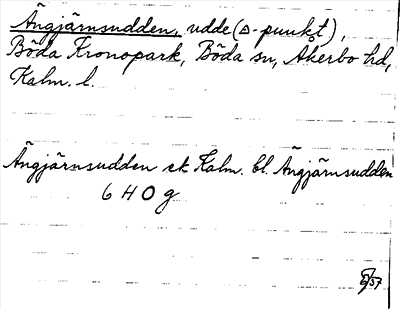 Ängjärnsudden, udde (△-punkt),
Böda Kronopark, Böda sn, Åkerbo hd,
Kalm. l.
Ängjärnsudden ek Kalm. bl. Ängjärnsudden
6 H 0 g